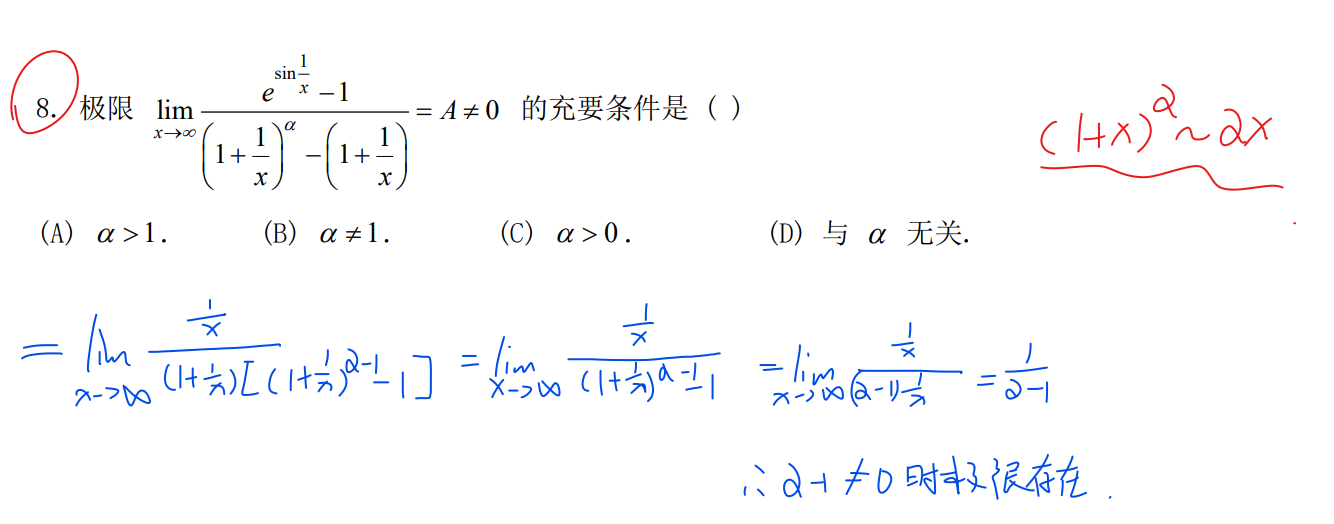 8. 极限 lim_{x→∞} (e^{sin 1/x} − 1) / ((1+1/x)^α − (1+1/x)) = A ≠ 0 的充要条件是 ( )
(1+x)^α ~ αx
(A) α > 1. (B) α ≠ 1. (C) α > 0. (D) 与 α 无关.
= lim_{x→∞} (1/x) / ((1+1/x)[(1+1/x)^{α-1} − 1]) = lim_{x→∞} (1/x) / ((1+1/x)^{α-1} − 1) = lim_{x→∞} (1/x) / ((α-1)1/x) = 1/(α-1)
∴ α-1 ≠ 0 时极限存在.